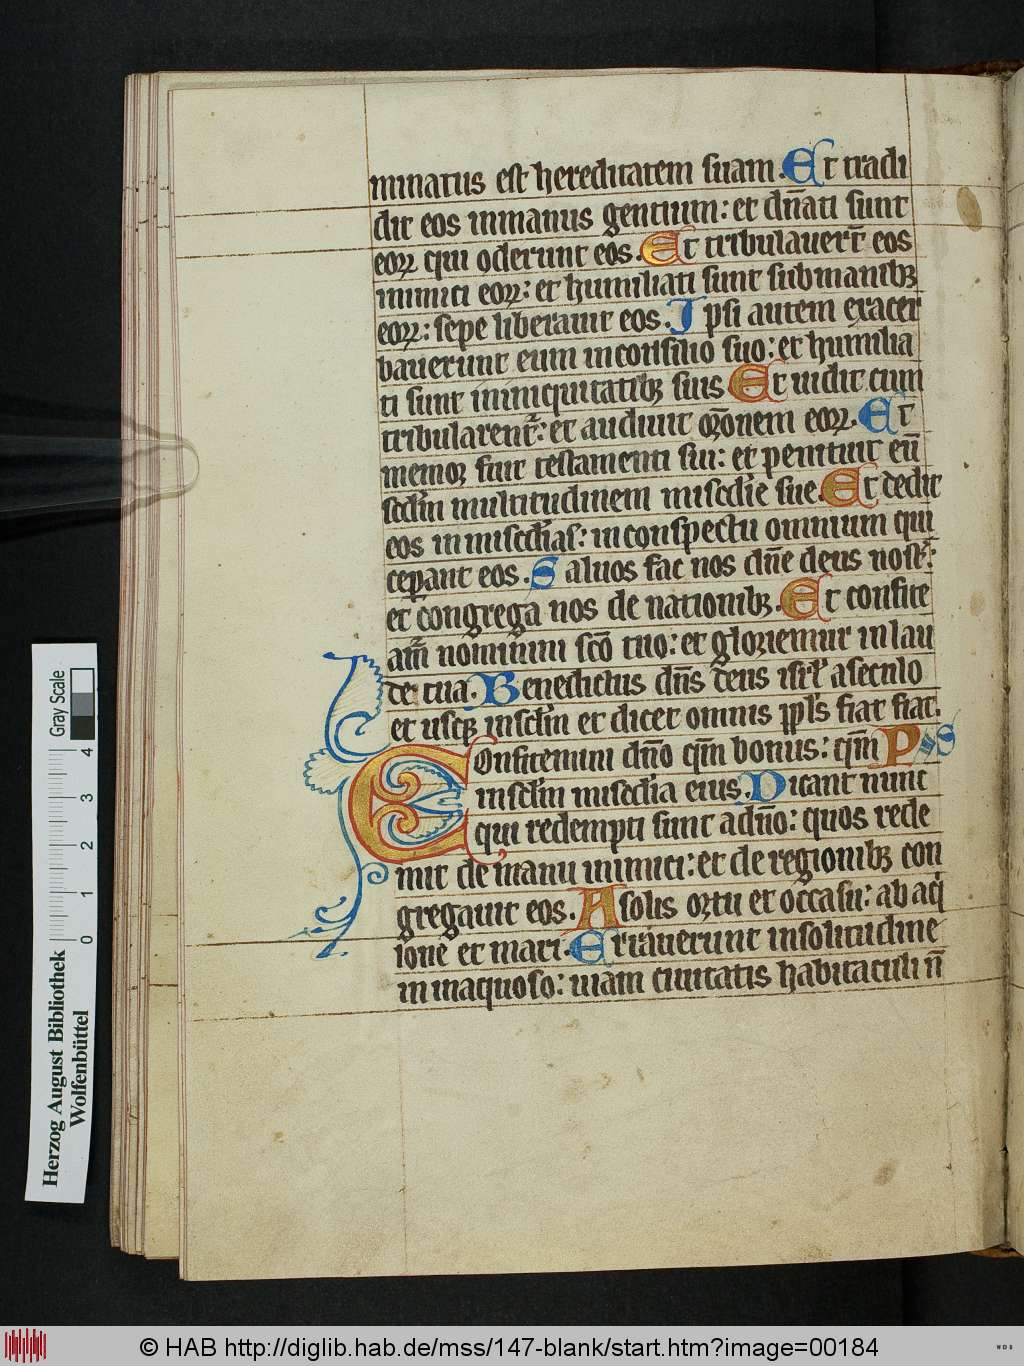 minatus est hereditatem suam. Et tradi
dit eos inmanus gentium: et dn̄ati sunt
eoꝝ qui oderunt eos. Et tribulauert̄ eos
inimici eoꝝ: et humiliati sunt submanibꝫ
eoꝝ: sepe liberauit eos. Ipsi autem exacer
bauerunt eum inconsilio suo: et humilia
ti sunt ininiquitatibꝫ suis Et uidit cum
tribularent᷑: et audiuit or̄onem eoꝝ. Et
memor fuit testamenti sui: et penituit eū
scd̄m multitudinem misedīe sue. Et dedit
eos inmisedīas: inconspectu omnium qui
ceꝑant eos. Saluos fac nos dn̄e deus nost᷑:
et congrega nos de nationibꝫ. Et confite
am᷑ nomini scō tuo: et gloriemur inlau
de tua. Benedictus dn̄s deus isrl̄ aseculo
et usqꝫ inscd̄m et dicet omnis ppl̄s fiat fiat.
Confitemini dn̄o qm̄ bonus: qm̄ PS
inscd̄m misedīa eius. Dicant nunc
qui redempti sunt adn̄o: quos rede
mit de manu inimici: et de regionibꝫ con
gregauit eos. A solis ortu et occasu: ab aq̇
lone et mari. Errauerunt insolitudine
in inaquoso: uiam ciuitatis habitaculi n̄
Herzog August Bibliothek
Wolfenbüttel
0 1 2 3 4
Gray Scale
© HAB http://diglib.hab.de/mss/147-blank/start.htm?image=00184